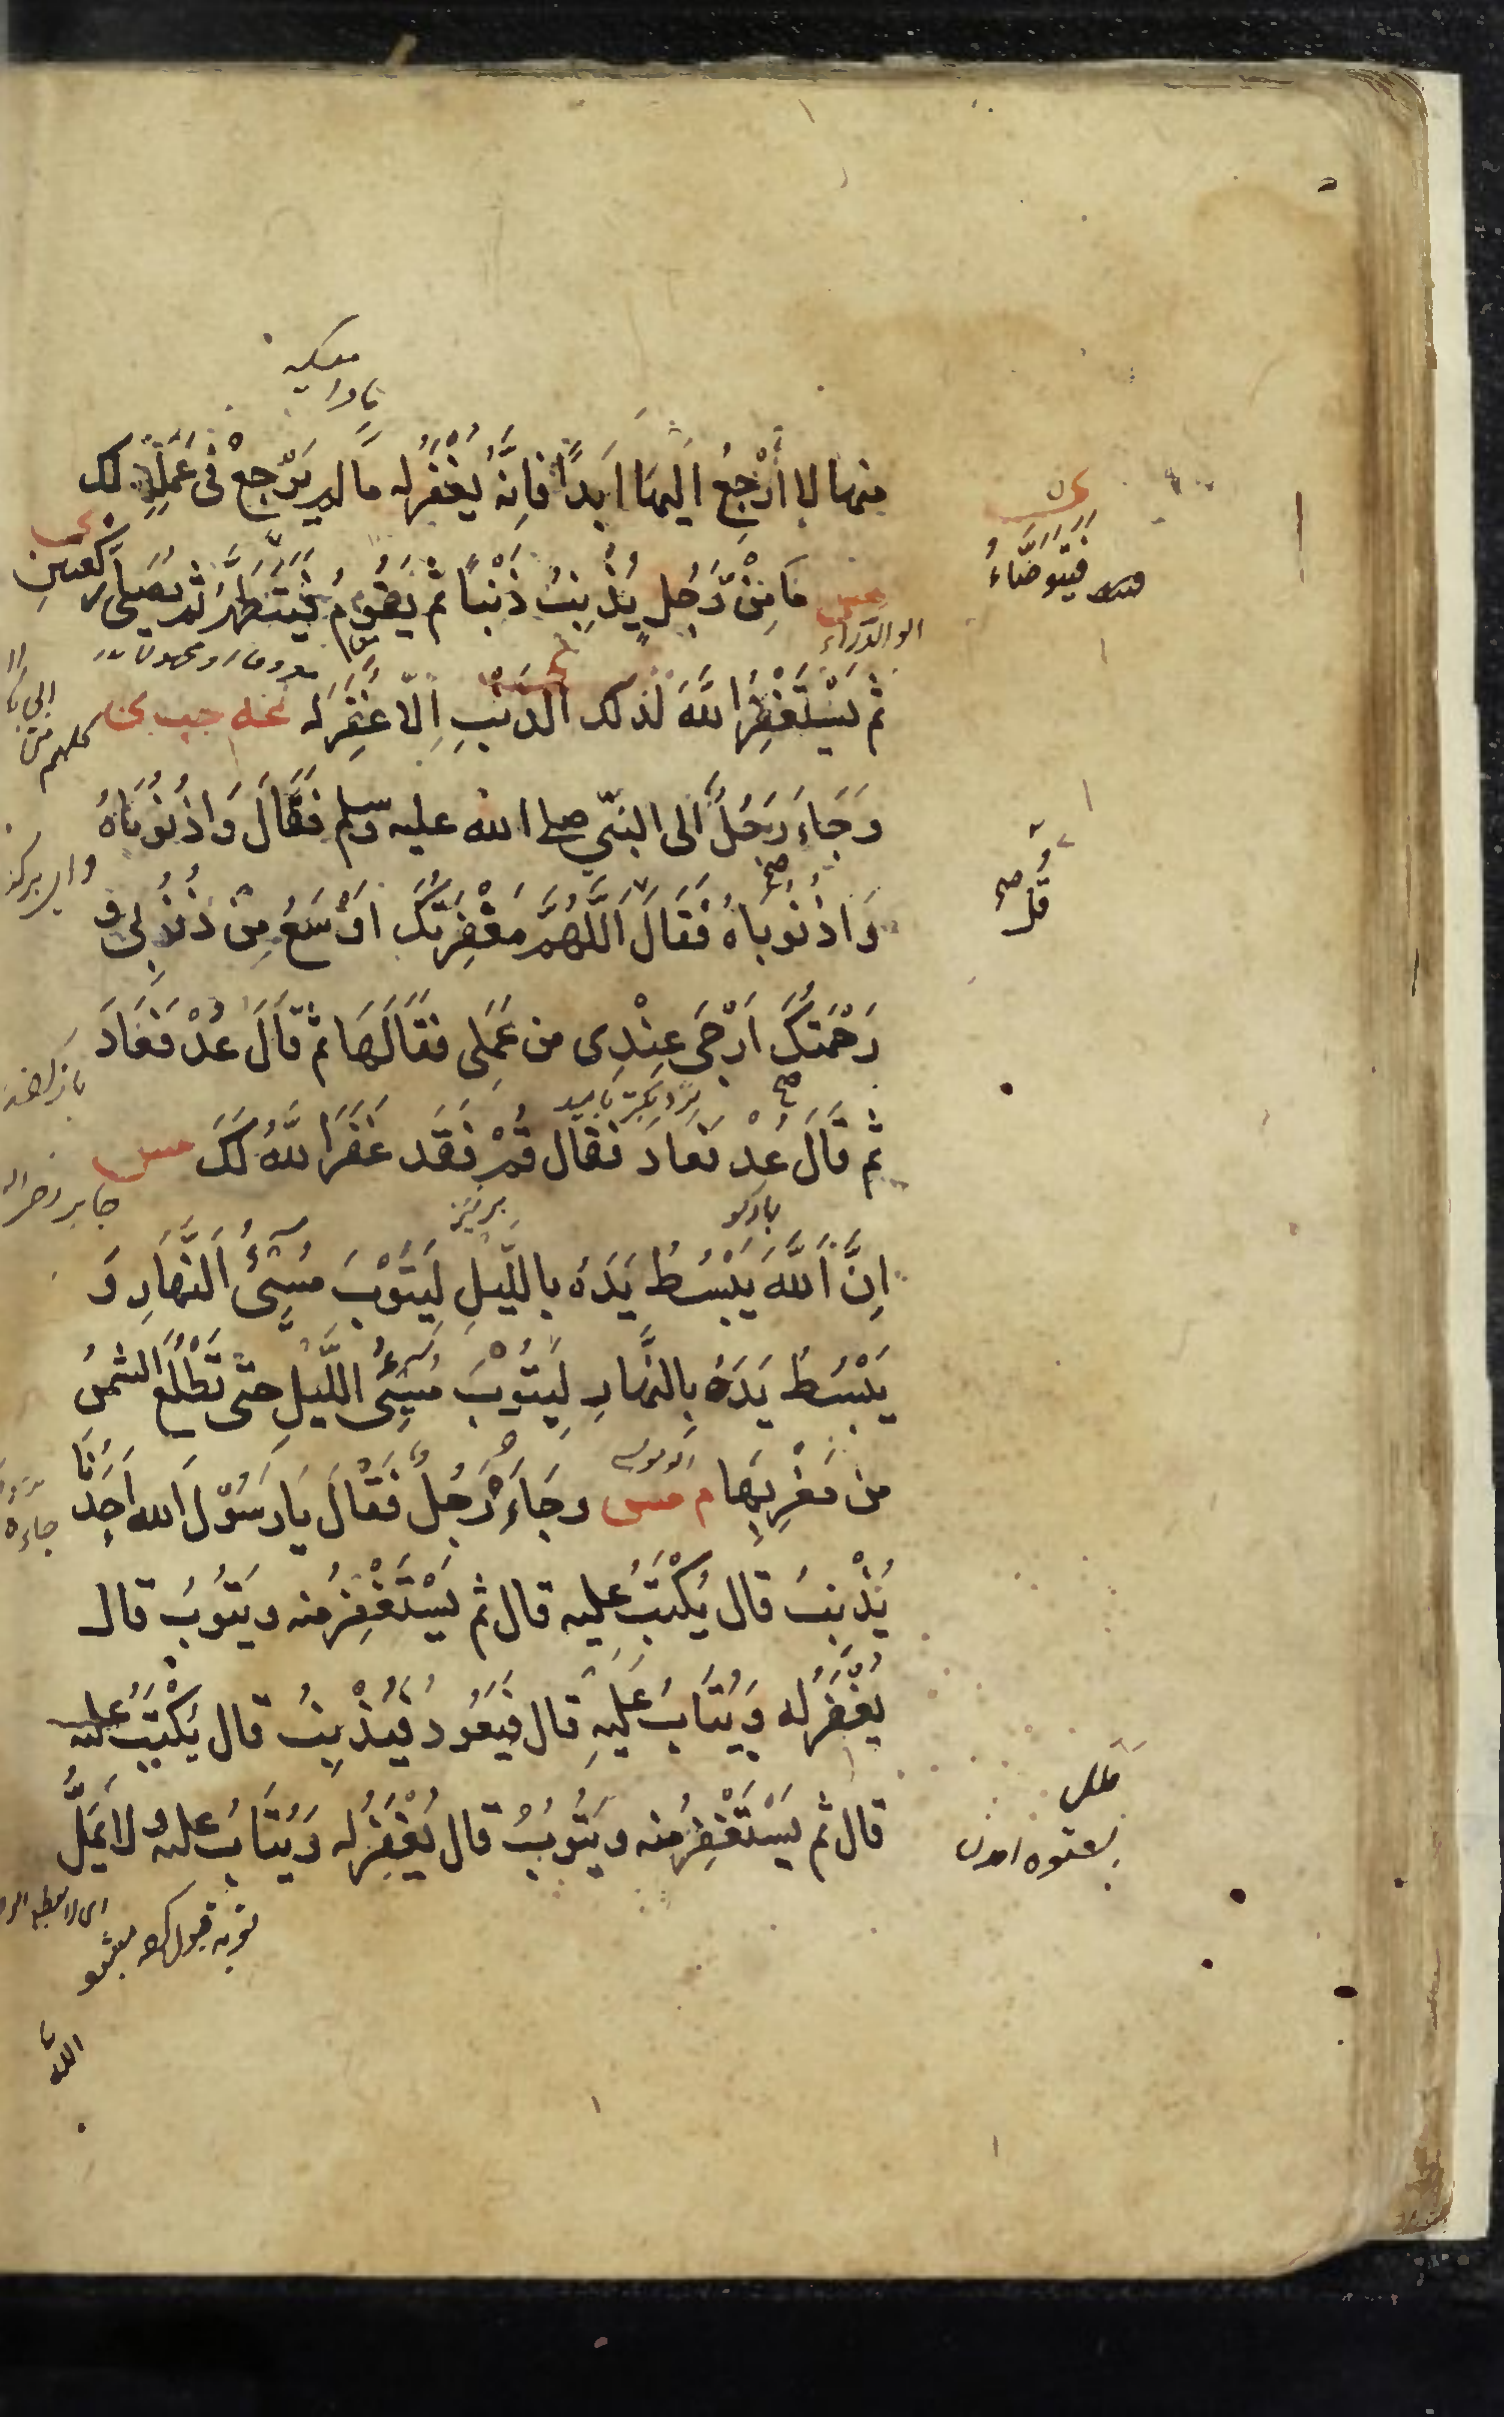 منها لا أَرْجِعُ اَلَيهَا اَبَدًا فَاِنَّهُ يُغْفَرُ لَه مَا لَم يَرْجِعْ فى عَمَلِهِ ذلك
مس مَا مِنْ رَجُلٍ يُذْنِبُ ذَنْبًا ثم يَقُومُ فَيَتَطَهَّرُ ثم يُصَلِّى رَكْعَتَينِ
فَيَتَوضَّاءُ
ابو الدرداء
ثم يَسْتَغْفِرُ اللهَ لذلك الذنبِ اِلّا غُفِرَ لَه عه حب ى
وَجَاءَ رَجُلٌ اَلى النبّي صلى الله عليه وسلم فَقَالَ وَاذُنُوبَاهُ
وَاذُنُوبَاهُ فَقَالَ اَللَّهُمَّ مَغْفِرَتُكَ اَوْسَعُ مِنْ ذُنُوبِى و
قُلْ صح
رَحْمَتُكَ اَرْجَى عِنْدِى من عَمَلِى فقَالَهَا ثم قَالَ عُدْ فَعَادَ
ثم قَالَ عُدْ فَعَادَ فقال قُمْ فَقَد غَفَرَ اللهُ لَكَ مس
جابر رضى الله
اِنَّ اللهَ يَبْسُطُ يَدَهُ بالليّلِ لِيَتُوْبَ مُسِىْٓءُ النَّهَارِ وَ
يَبْسُطُ يَدَهُ بِالنَّهارِ لِيَتُوْبَ مُسِىْٓءُ اللَّيْلِ حتى تَطْلُعَ الشمسُ
من مَغْرِبِهَا م مس وجَاءَهُ رَجُلٌ فَقْالَ يَا رَسُوْلَ الله اَحَدُنَا
ابو موسى
يُذْنِبُ قال يُكْتَبُ عليه قال ثم يَسْتَغْفِرُ منه ويَتُوبُ قال
يُغْفَرُ له وَيُتَابُ عَلَيْهِ قال فَيَعُودُ فَيُذْنِبُ قال يُكْتَبُ عليه
قال ثم يَسْتَغْفِرُ منه ويَتُوبُ قال يُغْفَرُ له وَيُتَابُ عليه ولا يَمَلُّ
توبه قبول
الله